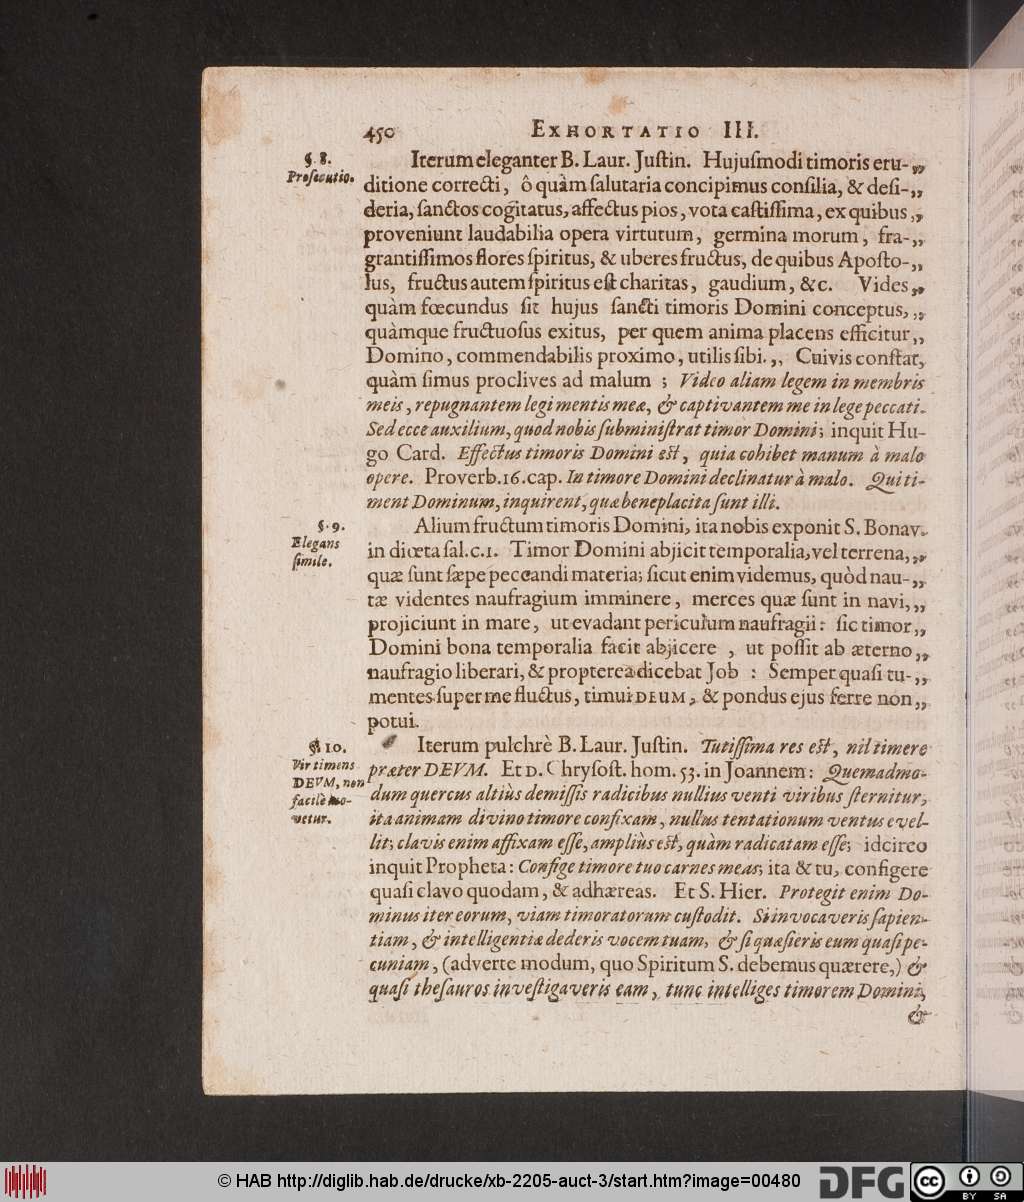 450 EXHORTATIO III.
§. 8.
Prosecutio.
Iterum eleganter B. Laur. Justin. Hujusmodi timoris eru-„
ditione correcti, ô quàm salutaria concipimus consilia, & desi-„
deria, sanctos cogitatus, affectus pios, vota castissima, ex quibus „
proveniunt laudabilia opera virtutum, germina morum, fra-„
grantissimos flores spiritus, & uberes fructus, de quibus Aposto-„
lus, fructus autem spiritus est charitas, gaudium, &c. Vides „
quàm fœcundus sit hujus sancti timoris Domini conceptus, „
quàmque fructuosus exitus, per quem anima placens efficitur „
Domino, commendabilis proximo, utilis sibi. „ Cuivis constat,
quàm simus proclives ad malum ; Video aliam legem in membris
meis, repugnantem legi mentis meæ, & captivantem me in lege peccati.
Sed ecce auxilium, quod nobis subministrat timor Domini; inquit Hu-
go Card. Effectus timoris Domini est, quia cohibet manum à malo
opere. Proverb. 16. cap. In timore Domini declinatur à malo. Qui ti-
ment Dominum, inquirent, quæ beneplacita sunt illi.
§. 9.
Elegans
simile.
Alium fructum timoris Domini, ita nobis exponit S. Bonav.
in diœta sal. c. 1. Timor Domini abjicit temporalia, vel terrena, „
quæ sunt sæpe peccandi materia; sicut enim videmus, quòd nau-„
tæ videntes naufragium imminere, merces quæ sunt in navi, „
projiciunt in mare, ut evadant periculum naufragii: sic timor „
Domini bona temporalia facit abjicere , ut possit ab æterno „
naufragio liberari, & propterea dicebat Job : Semper quasi tu-„
mentes super me fluctus, timui DEUM, & pondus ejus ferre non „
potui.
§. 10.
Vir timens
DEVM, non
facilè mo-
vetur.
Iterum pulchrè B. Laur. Justin. Tutissima res est, nil timere
præter DEVM. Et D. Chrysost. hom. 53. in Joannem: Quemadmo-
dum quercus altiùs demissis radicibus nullius venti viribus sternitur,
ita animam divino timore confixam, nullus tentationum ventus evel-
lit; clavis enim affixam esse, ampliùs est, quàm radicatam esse; idcirco
inquit Propheta: Confige timore tuo carnes meas; ita & tu, configere
quasi clavo quodam, & adhæreas. Et S. Hier. Protegit enim Do-
minus iter eorum, viam timoratorum custodit. Si invocaveris sapien-
tiam, & intelligentiæ dederis vocem tuam, & si quæsieris eum quasi pe-
cuniam, (adverte modum, quo Spiritum S. debemus quærere,) &
quasi thesauros investigaveris eam, tunc intelliges timorem Domini,
&
© HAB http://diglib.hab.de/drucke/xb-2205-auct-3/start.htm?image=00480
DFG
cc
BY SA